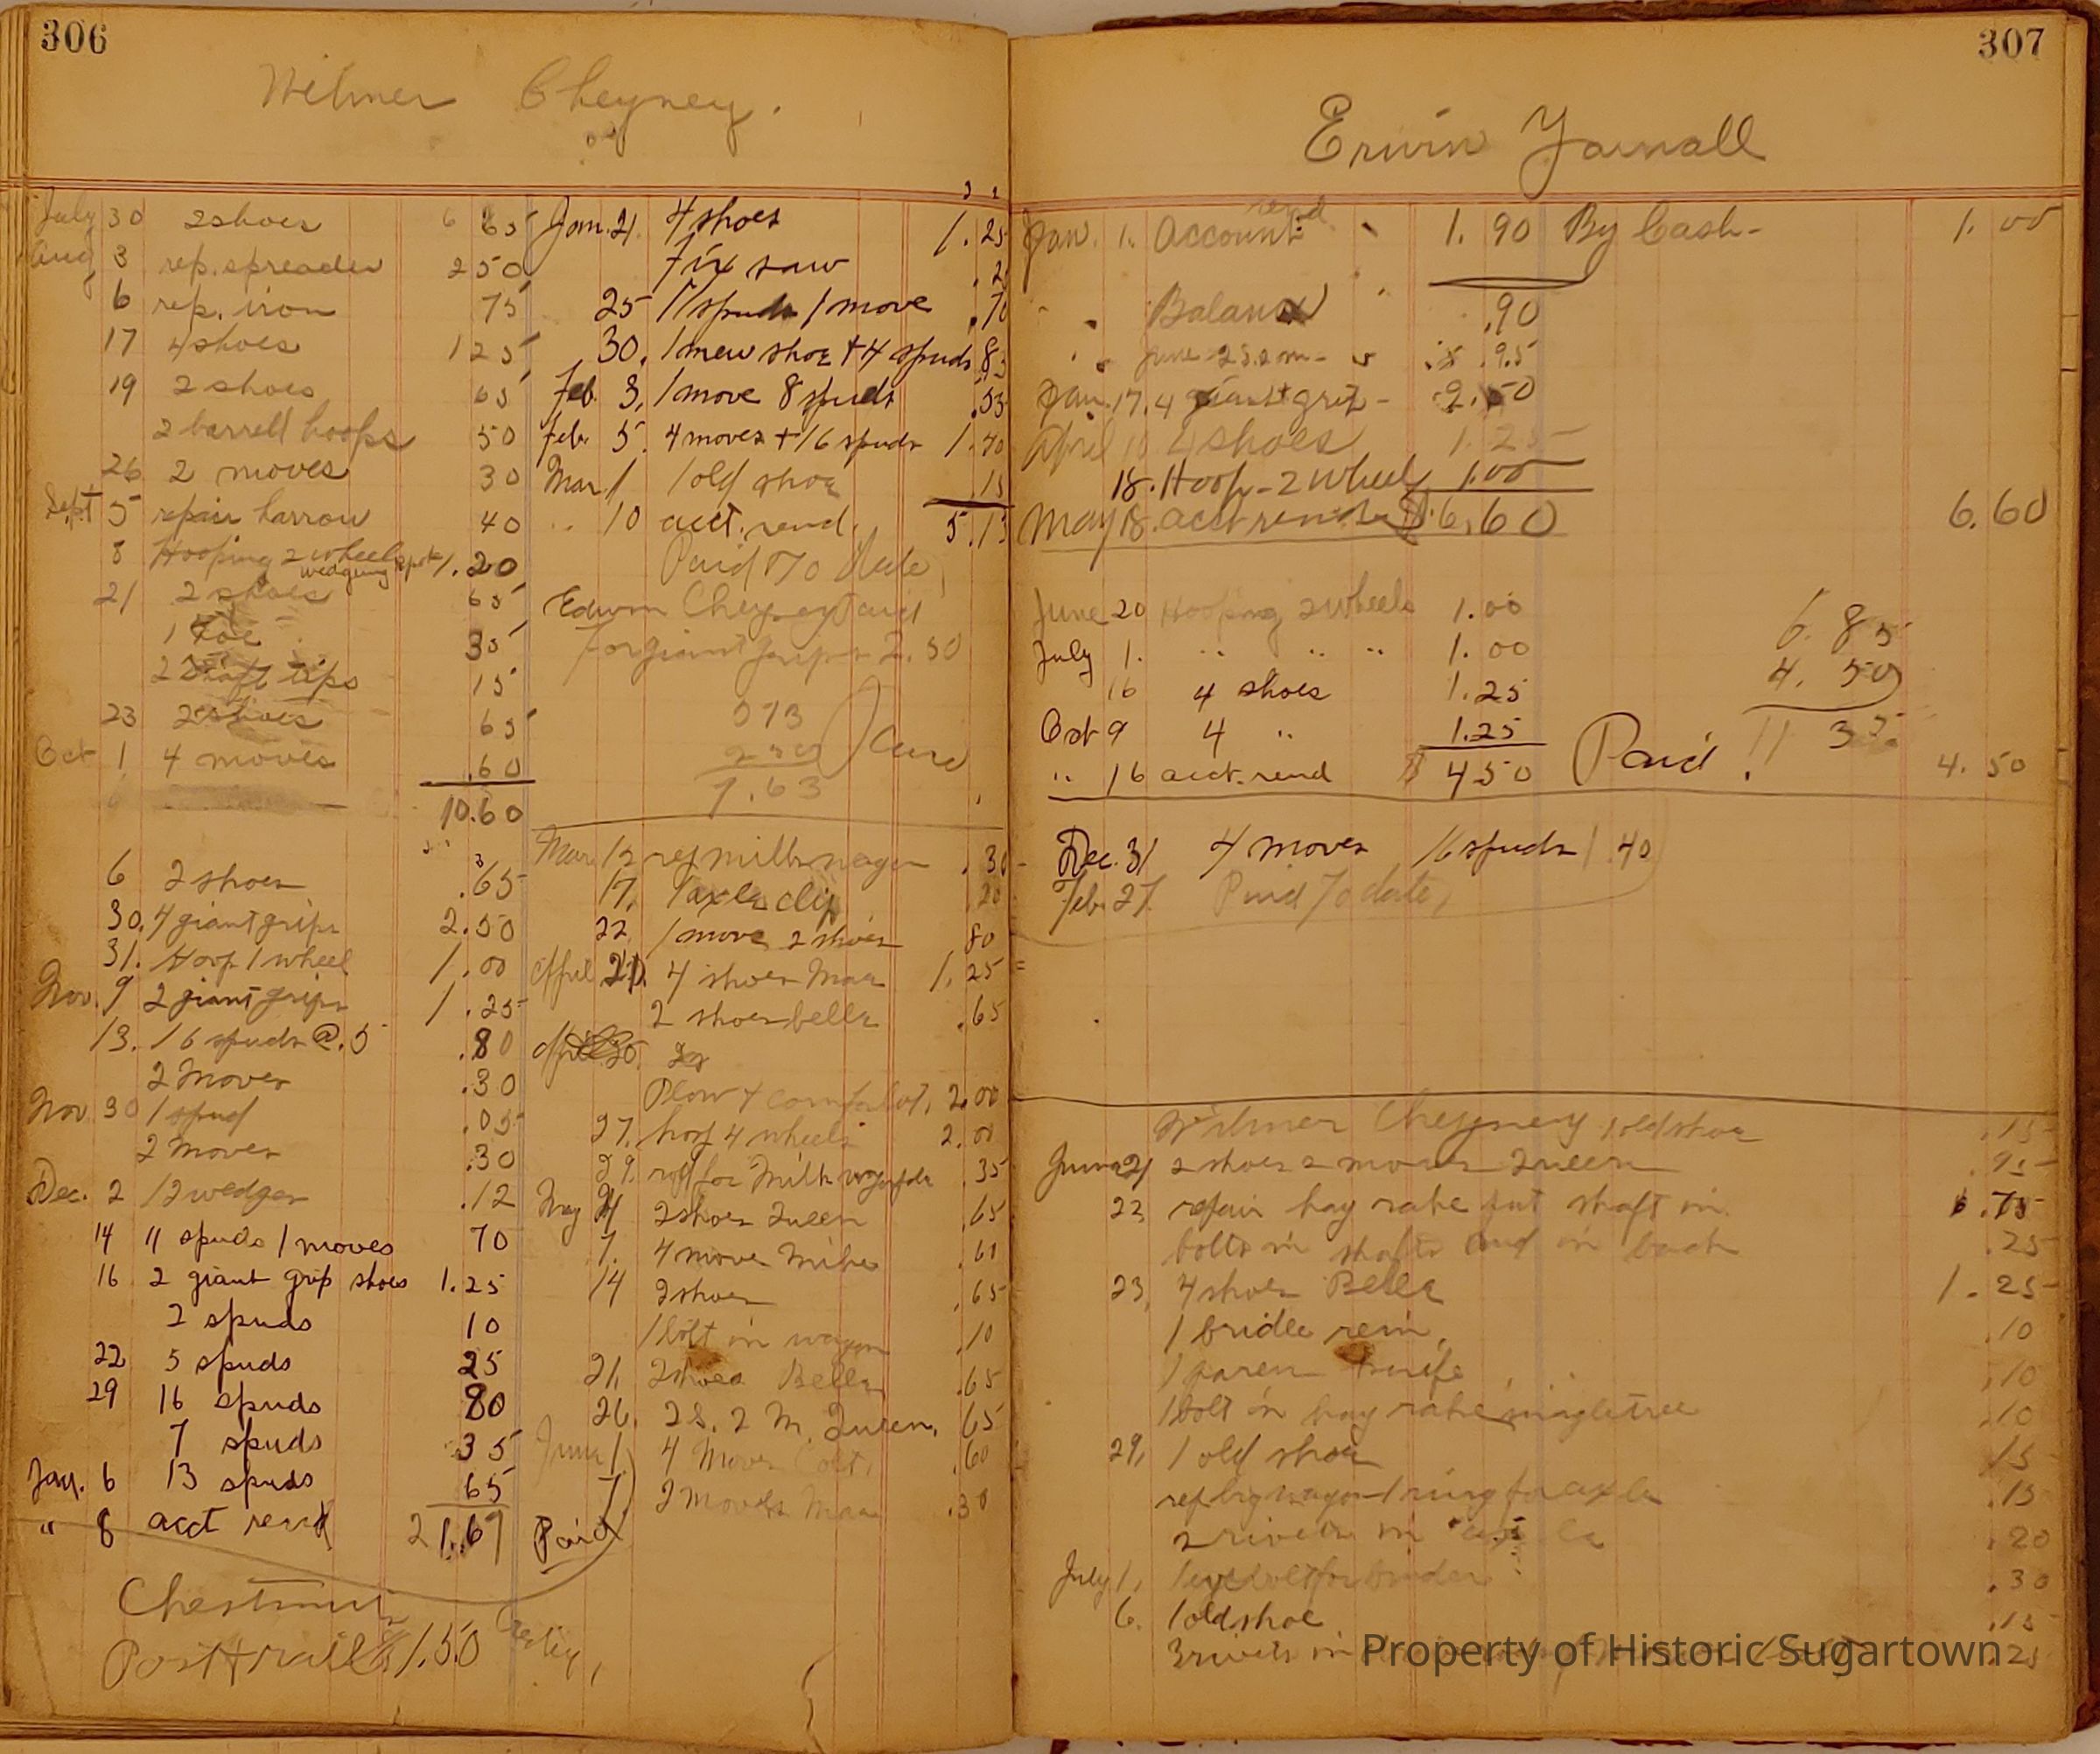 306
Wilmer Cheyney.
July 30 2 shoes 65
Aug 3 rep. spreader 250
6 rep. iron 75
17 4 shoes 125
19 2 shoes 65
2 barrell hoops 50
26 2 moves 30
Sept 5 repair harrow 40
8 Hooping 2 wheels 1.20
wedging
21 2 shoes 65
1 Toe 35
2 shaft tips 15
23 2 shoes 65
Oct 1 4 moves .60
10.60
6 2 shoes .65
30. 4 giant grips 2.50
31. Hoop 1 wheel 1.00
Nov. 9 2 giant grips 1.25
13. 16 spuds @.5 .80
2 Moves .30
Nov 30 1 spud .05
2 Moves .30
Dec. 2 12 wedges .12
14 11 spuds 1 moves 70
16 2 giant grip shoes 1.25
2 spuds 10
22 5 spuds 25
29 16 spuds 80
7 spuds 35
Jan. 6 13 spuds 65
" 8 acct rend 21.67 Paid
Chestnut
Post & rails 1.50
Jan. 21. 4 shoes 1.25
Fix saw
25 11 spuds 1 move .70
30. 1 new shoe + 4 spuds
Feb. 3, 1 move 8 spuds .55
Feb. 5. 4 moves + 16 spuds 1.40
Mar. 1 1 old shoe 15
" 10 acct. rend. 5.13
Paid To date
Edwin Cheyney Paid
for giant grips 2.50
513
250
7.63
Mar. 12 rep milk wagon .30
17, 1 axle clip .20
22 1 move 2 shoes .80
April 21. 4 shoes Mae 1.25
2 shoes bella .65
April 25.
Plow & 2.00
27. hoop 4 wheels 2.00
29. for milk wagon .35
May 4 2 shoes Queen .65
7. 4 move Mike .60
14 2 shoes .65
1 bolt in wagon .10
21, 2 shoes Bella .65
26. 2 S. 2 M. Queen, 65
June 1, 4 Moves Colt, .60
7 2 moves Mae .30
307
Erwin Yarnall
Jan. 1. Account rend 1.90 By Cash- 1.00
Balance .90
Jan. 17. 4 giant grip - 2.50
April 4 shoes 1.25
18. Hoop - 2 wheels 1.00
May 18. acct rend $6.60 6.60
June 20 Hooping 2 wheels 1.00
July 1. " " " 1.00
16 4 shoes 1.25
Oct 9 4 " 1.25
" 16 acct. rend $ 450 Paid 4.50
6 85
4. 50
11 35
Dec. 31 4 moves 16 spuds 1.40
Feb. 27. Paid To date,
Wilmer Cheyney 1 old shoe .15
June 21 2 shoes 2 moves Queen .95
22, repair hay rake put shaft in .75
bolts in shafts and in back .25
23, 4 shoes Bella 1.25
1 bridle rein, .10
1 paren knife .10
1 bolt in hay rake singletree .10
29, 1 old shoe 15
rep big wagon 1 ring for axle .15
2 rivets in .20
July 1, 1 eye bolt for binder .30
6. 1 old shoe .15
3 rivets in .25
Property of Historic Sugartown